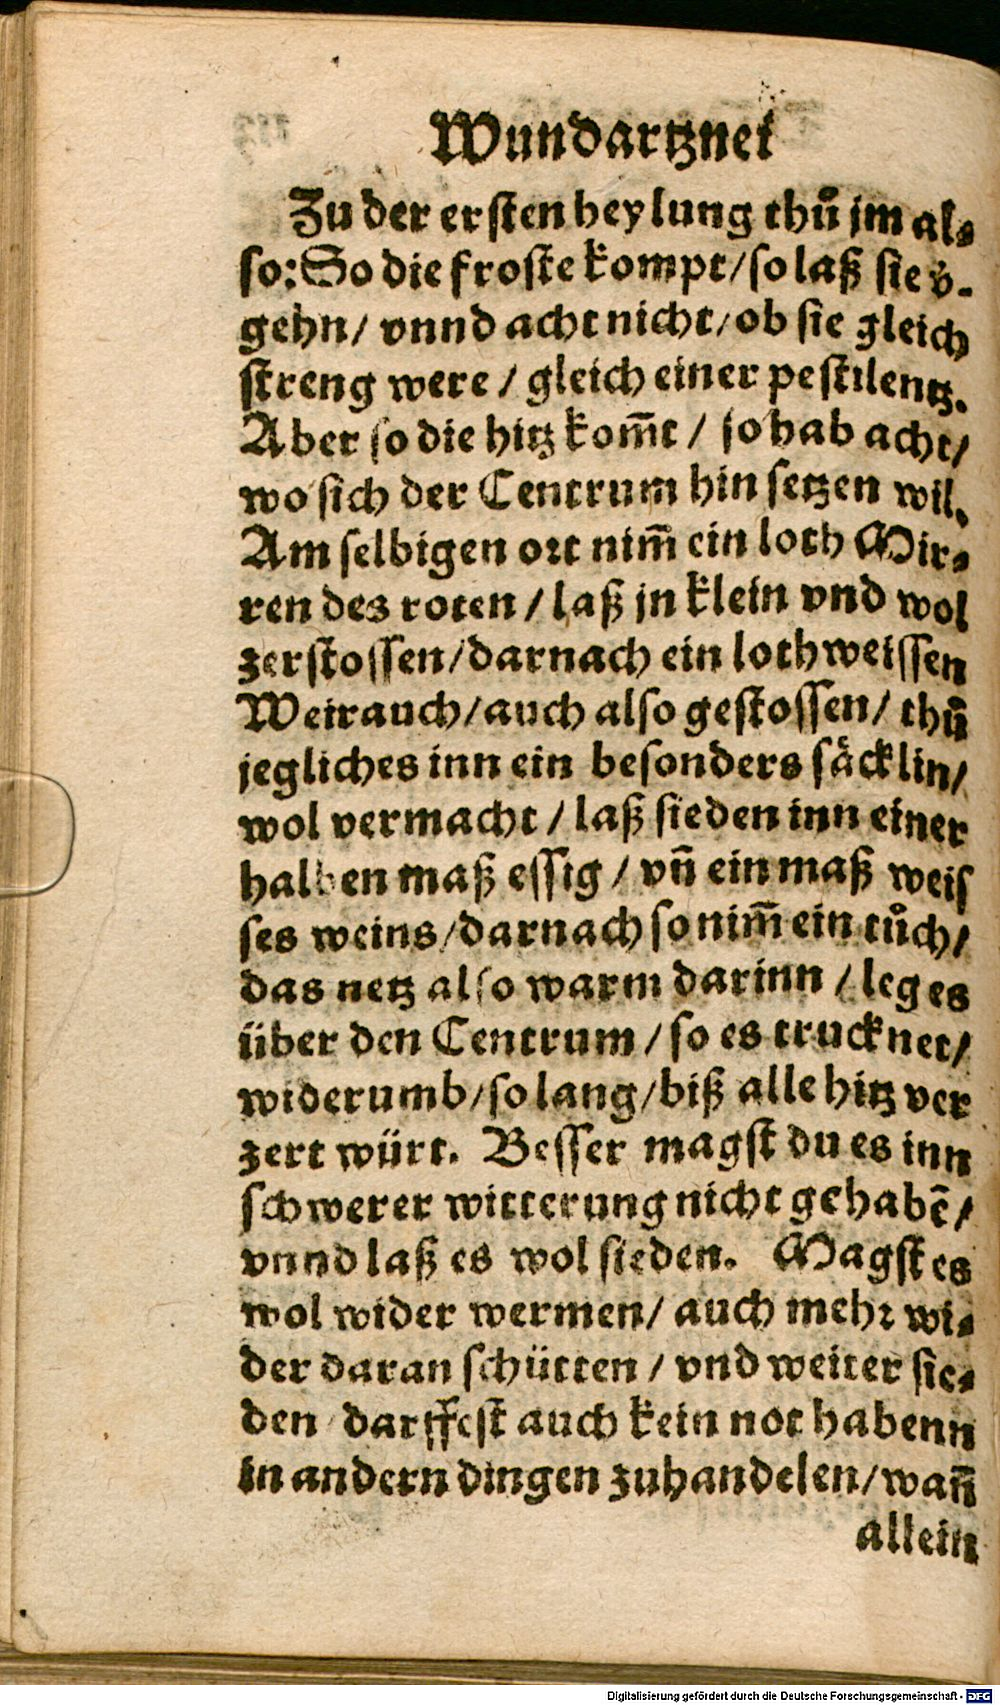 Wundartznei
Zu der ersten heylung thů jm al⸗
so: So die froste kompt / so laß sie v̓.
gehn / vnnd acht nicht / ob sie gleich
streng were / gleich einer pestilentz.
Aber so die hitz kom̃t / so hab acht /
wo sich der Centrum hin setzen wil.
Am selbigen ort nim̃ ein loth Mir⸗
ren des roten / laß jn klein vnd wol
zerstossen / darnach ein loth weissen
Weirauch / auch also gestossen / thů
jegliches inn ein besonders säcklin /
wol vermacht / laß sieden inn einer
halben maß essig / vñ ein maß weis
ses weins / darnach so nim̃ ein tůch /
das netz also warm darinn / leg es
über den Centrum / so es trucknet /
widerumb / so lang / biß alle hitz ver
zert würt. Besser magst du es inn
schwerer witterung nicht gehabẽ /
vnnd laß es wol sieden. Magst es
wol wider wermen / auch mehr wi⸗
der daran schütten / vnd weiter sie⸗
den / darffest auch kein not habenn
in andern dingen zuhandelen / wañ
allein
Digitalisierung gefördert durch die Deutsche Forschungsgemeinschaft - DFG